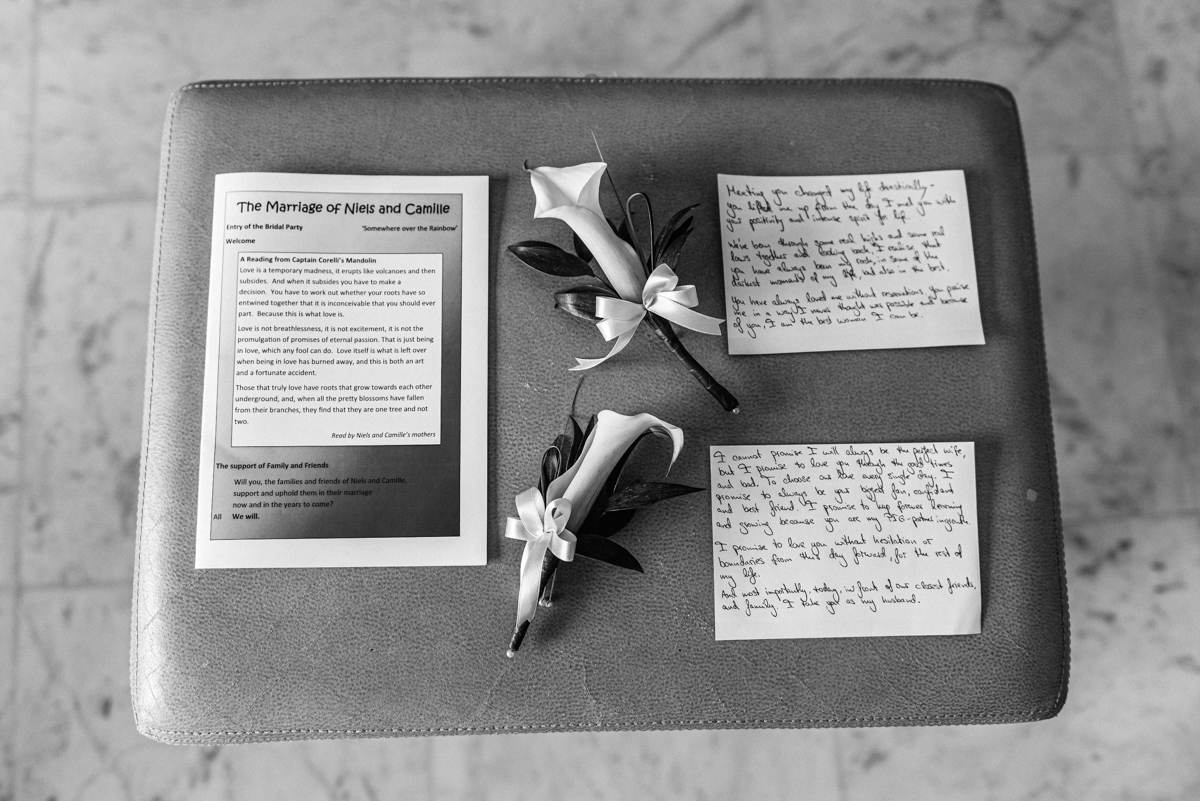 The Marriage of Niels and Camille
Entry of the Bridal Party 'Somewhere over the Rainbow'
Welcome
A Reading from Captain Corelli's Mandolin
Love is a temporary madness, it erupts like volcanoes and then
subsides. And when it subsides you have to make a
decision. You have to work out whether your roots have so
entwined together that it is inconceivable that you should ever
part. Because this is what love is.
Love is not breathlessness, it is not excitement, it is not the
promulgation of promises of eternal passion. That is just being
in love, which any fool can do. Love itself is what is left over
when being in love has burned away, and this is both an art
and a fortunate accident.
Those that truly love have roots that grow towards each other
underground, and, when all the pretty blossoms have fallen
from their branches, they find that they are one tree and not
two.
Read by Niels and Camille's mothers
The support of Family and Friends
Will you, the families and friends of Niels and Camille,
support and uphold them in their marriage
now and in the years to come?
All We will.
Meeting you changed my life drastically.
you lifted me up from the day I met you with
your positivity and intense spirit for life.
We've been through some real highs and some real
lows together and looking back, I realise that
you have always been my rock, in some of the
darkest moments of my life, but also in the best.
You have always loved me without reservations, you praise
me in a way I never thought was possible and because
of you, I am the best woman I can be.
I cannot promise I will always be the perfect wife,
but I promise to love you through the good times
and bad. To choose our love every single day. I
promise to always be your biggest fan, confidant
and best friend. I promise to keep forever learning
and growing because you are my partner in growth.
I promise to love you without hesitation or
boundaries from this day forward, for the rest of
my life.
And most importantly, today, in front of our closest friends,
and family. I take you as my husband.